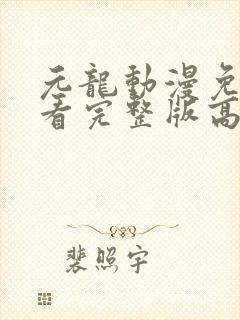 元龍動漫免
看完整版高
裴照宇